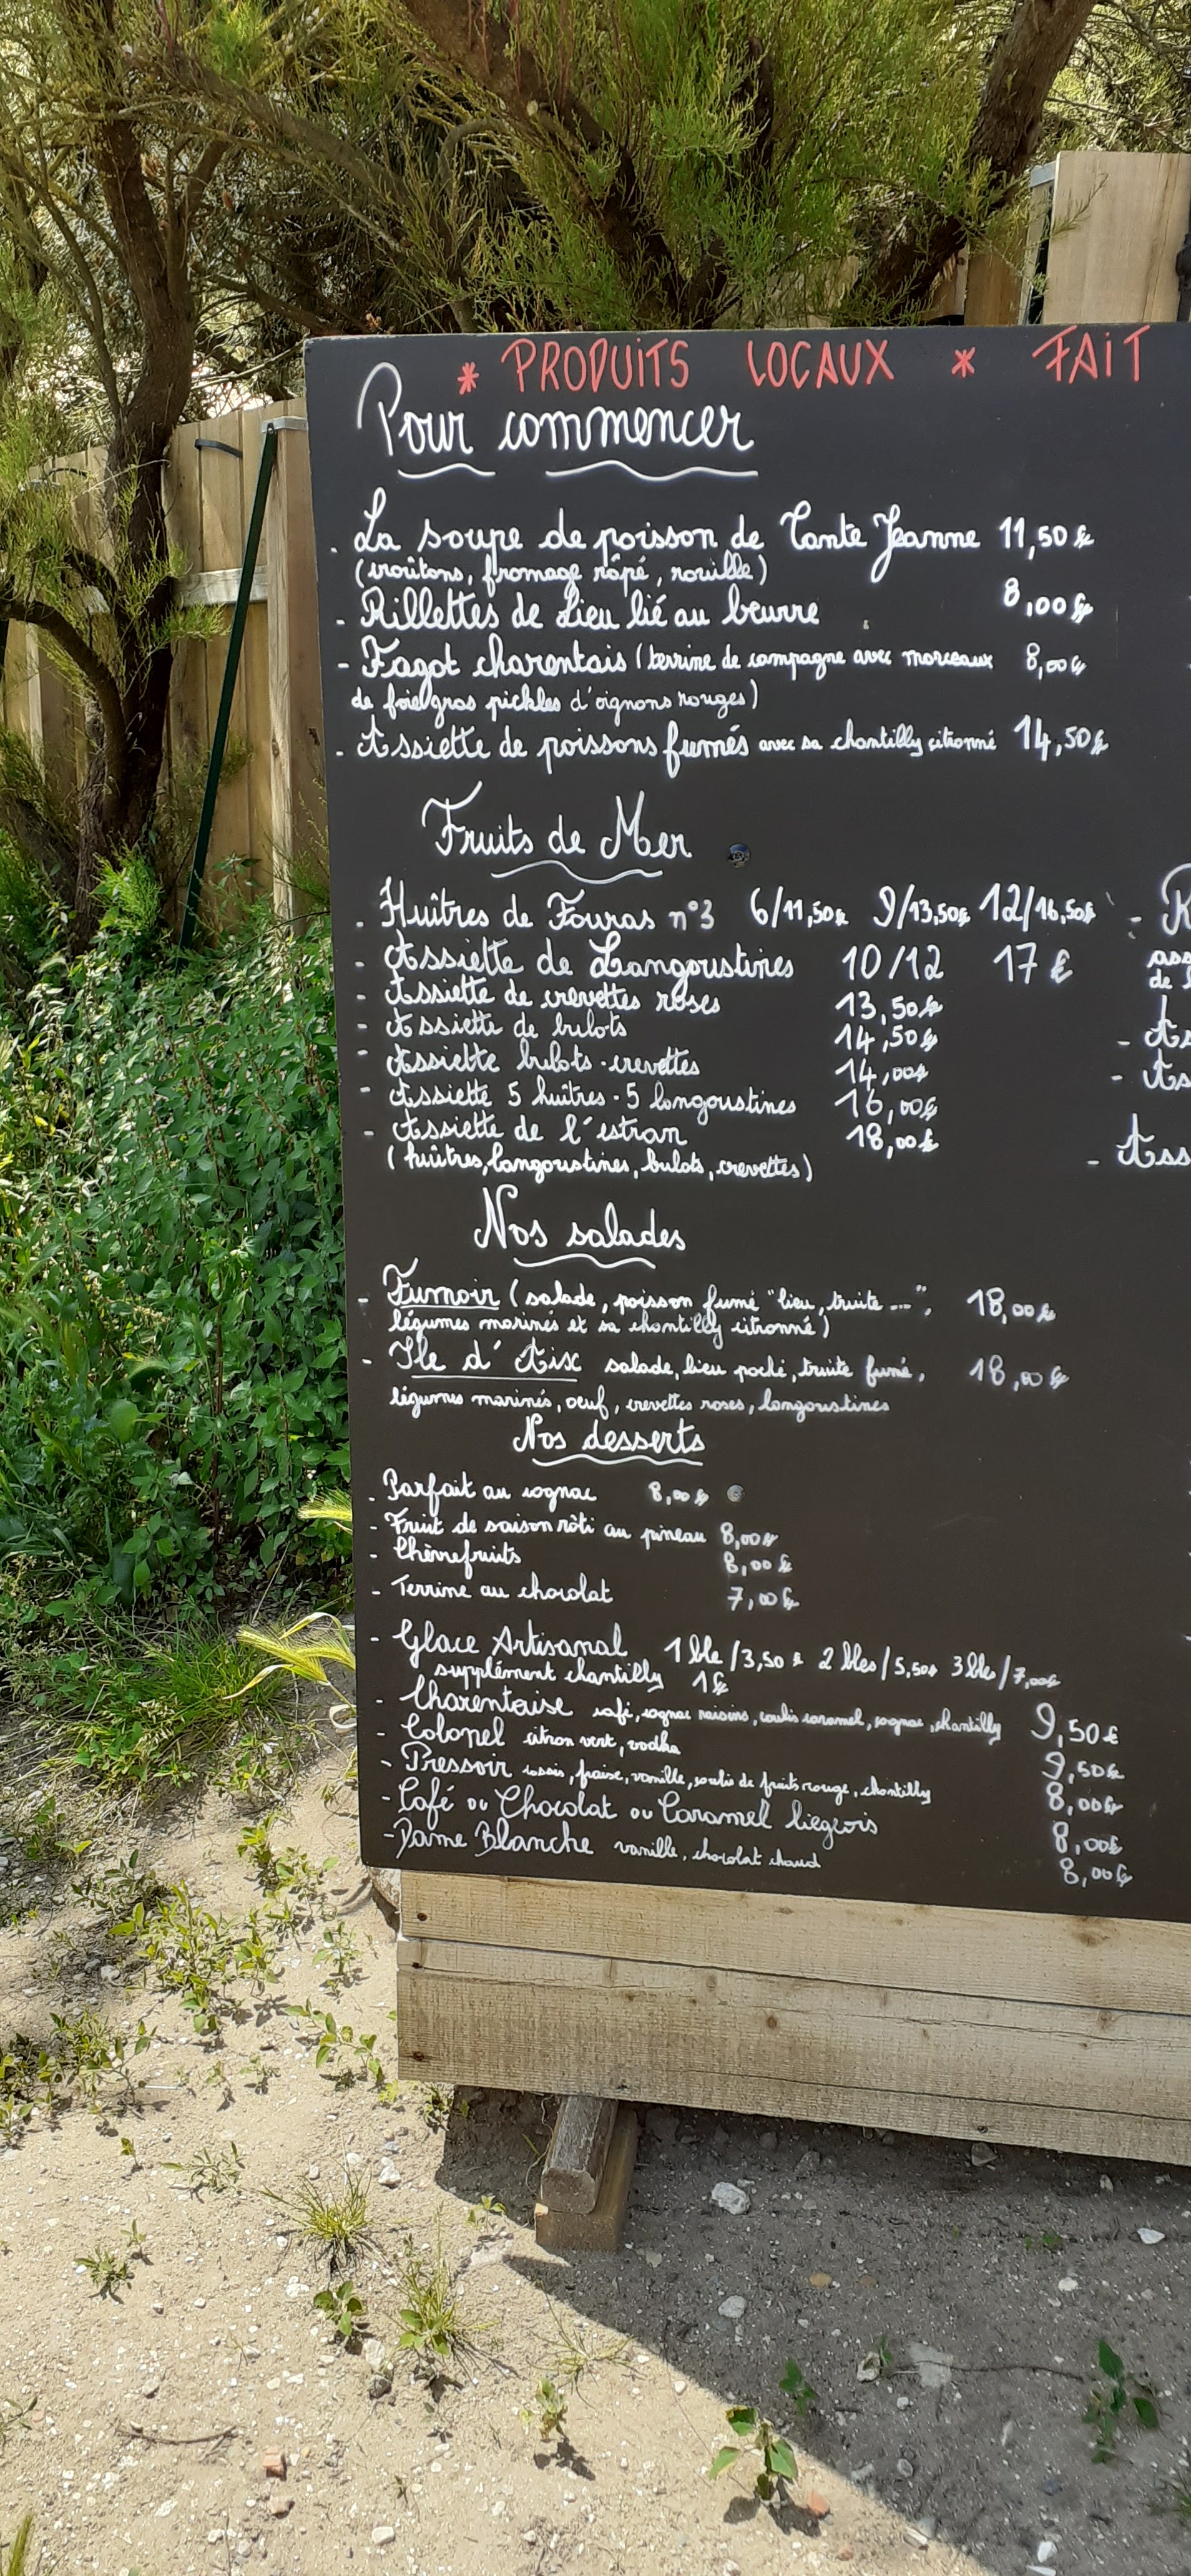 * PRODUITS LOCAUX * FAIT
Pour commencer
- La soupe de poisson de Tante Jeanne 11,50€
(croûtons, fromage râpé, rouille)
- Rillettes de Lieu lié au beurre 8,00€
- Fagot charentais (terrine de campagne avec morceaux 8,00€
de foie gras pickles d'oignons rouges)
- Assiette de poissons fumés avec sa chantilly citronné 14,50€
Fruits de Mer
- Huîtres de Fouras n°3 6/11,50€ 9/13,50€ 12/16,50€
- Assiette de Langoustines 10/12 17€
- Assiette de crevettes roses 13,50€
- Assiette de bulots 14,50€
- Assiette bulots-crevettes 14,00€
- Assiette 5 huîtres-5 langoustines 16,00€
- Assiette de l'estran 18,00€
(huîtres, langoustines, bulots, crevettes)
Nos salades
- Fumoir (salade, poisson fumé "lieu, truite ...", 18,00€
légumes marinés et sa chantilly citronné)
- Ile d'Aix salade, lieu poché, truite fumé, 18,00€
légumes marinés, oeuf, crevettes roses, langoustines
Nos desserts
- Parfait au cognac 8,00€
- Fruit de saison rôti au pineau 8,00€
- Chèvrefruits 8,00€
- Terrine au chocolat 7,00€
- Glace Artisanal 1 ble/3,50€ 2 bles/5,50€ 3 bles/7,00€
supplément chantilly 1€
- Charentaise café, cognac raisins, coulis caramel, cognac, chantilly 9,50€
- Colonel citron vert, vodka 9,50€
- Pressoir cassis, fraise, vanille, coulis de fruits rouge, chantilly 8,00€
- Café ou Chocolat ou Caramel liégeois 8,00€
- Dame Blanche vanille, chocolat chaud 8,00€